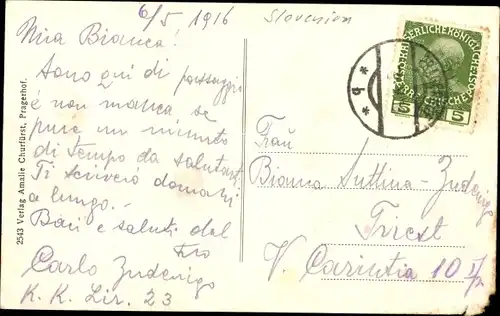 6/5 1916
Slovenien
Mia Bianca!
Sono qui di passaggio
è non manca se
pure un minuto
di tempo da salutarti
Ti scriverò domani
a lungo. -
Baci e saluti dal
Tuo
Carlo Zudenigo
K. K. Lir. 23
2543 Verlag Amalie Churfürst, Pragerhof.
5 5
* 9 *
Frau
Bianca Suttina-Zudenigo
Triest
V. Carintia 10 I/2